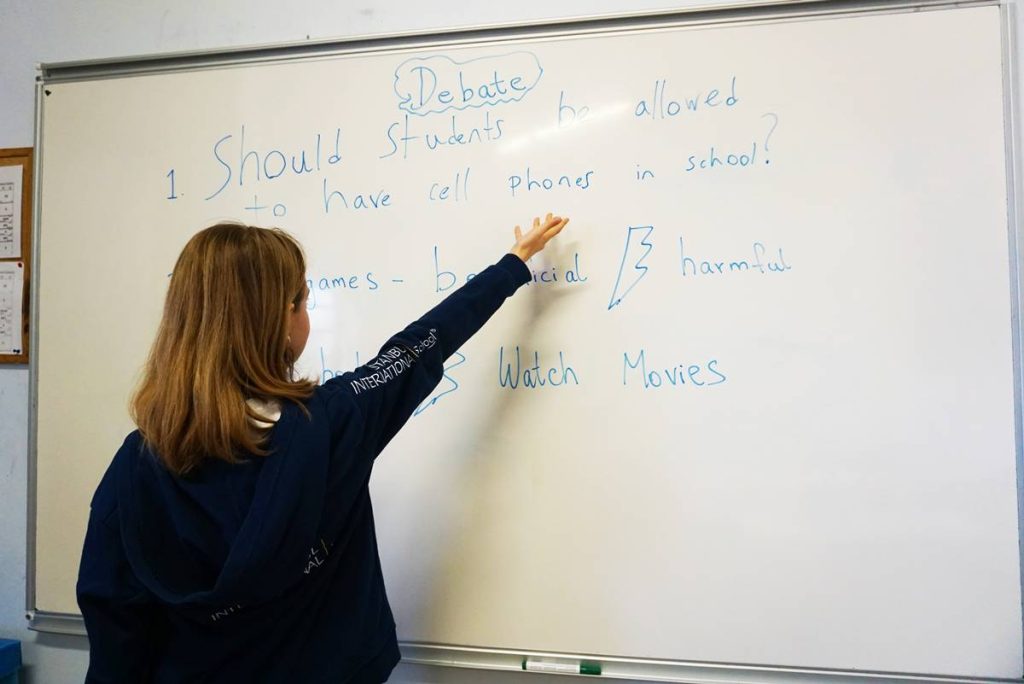 Debate
1. Should students be allowed
to have cell phones in school?
games - harmful
Watch Movies
STANBUL
INTERNATIONAL School